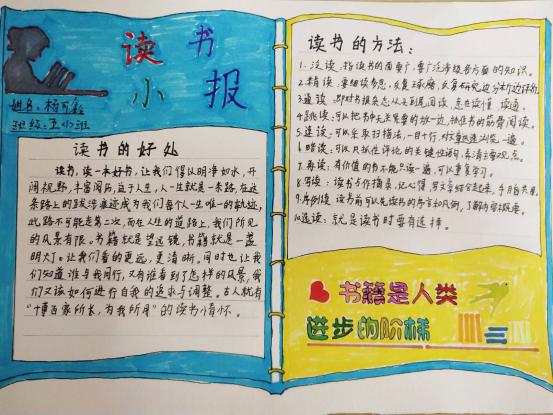 读书
小报
姓名:杨
班级:五(1)班
读书的好处
读书,读一本好书,让我们得以明净如水,开
阔视野,丰富阅历,益于人生。人一生就是一条路,在这
条路上的跋涉痕迹成为我们每个人一生唯一的轨迹,
此路不可能走第二次,而在人生的道路上,我们所见
的风景有限。书籍就是望远镜,书籍就是一盏
明灯。让我们看的更远,更清晰。同时也让我
们知道谁与我同行,又有谁看到了怎样的风景,我
们又该如何进行自我的追求与调整。古人就有
“博百家所长,为我所用”的读书情怀。
读书的方法:
1.泛读:指读书的面要广,要广泛涉猎各方面的知识。
2.精读:要细读多思,反复琢磨,反复研究边分析边评价。
3.通读:即对书报杂志从头到尾阅读,意在读懂、读通,
4.跳读:可以把书中无关紧要的放一边,抓住书的筋骨阅读。
5.速读:可以采取扫描法,一目十行,对文章迅速浏览一遍。
6.略读:可以只抓住评论的关键性语句,弄清主要观点。
7.再读:有价值的书不能只读一遍,可以重复学习。
8.写读:读书与作摘录、记心得、写文章结合起来,手脑共用。
9.序例读:读书前可以先读书的序言和凡例,了解内容概要。
10.选读:就是读书时要有选择。
书籍是人类
进步的阶梯